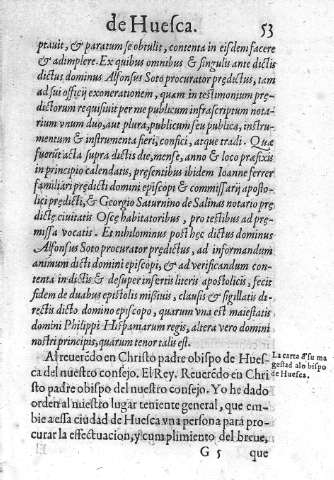 de Huesca.
53
ptauit, & paratum se obtulit, contenta in eisdem facere
& adimplere. Ex quibus omnibus & singulis ante dictis
dictus dominus Alfonsus Soto procurator prędictus, tam
ad sui officij exonerationem, quam in testimonium pre-
dictorum requisiuit per me publicum infrascriptum nota-
rium vnum duo, aut plura, publicum seu publica, instru-
mentum & instrumenta fieri, confici, atque tradi. Quæ
fuerūt acta supra dictis die, mense, anno & loco præfixis
in principio calendatis, presentibus ibidem Ioanne ferrer
familiari prędicti domini episcopi & commissarij aposto-
lici prędicti, & Georgio Saturnino de Salinas notario prę
dictę ciuitatis Oscę habitatoribus, pro testibus ad prę-
missa vocatis. Et nihilominus post hęc dictus dominus
Alfonsus Soto procurator prędictus, ad informandum
animum dicti domini episcopi, & ad verificandum con-
tenta in dictis & desuper insertis literis apostolicis, fecit
fidem de duabus epistolis missiuis, clausis & sigillatis di-
rectis dicto domino episcopo, quarum vna est maiestatis
domini Philippi Hispaniarum regis, altera vero domini
nostri principis, quarum tenor talis est.
Al reuerēdo en Christo padre obispo de Hues-
ca del nuestro consejo. El Rey. Reuerēdo en Chri
sto padre obispo del nuestro consejo. Yo he dado
orden al nuestro lugar teniente general, que em-
bie a essa ciudad de Huesca vna persona para pro-
curar la effectuacion, y cumplimiento del breue,
La carta d'su ma
gestad alo bispo
de Huesca.
G 5
que